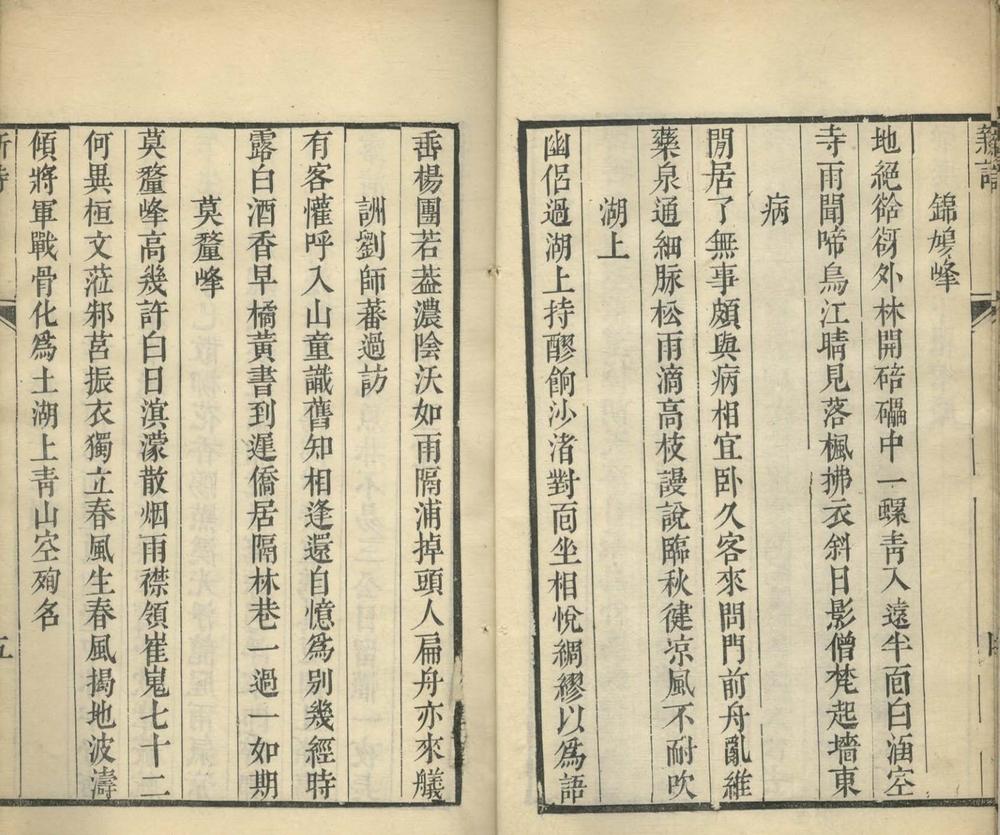 錦鳩峰
地絕谽谺外林開碚礧中一螺靑入遠半面白涵空
寺雨聞啼鳥江晴見落楓拂衣斜日影僧梵起墻東
病
閒居了無事頗與病相宜卧久客來問門前舟亂維
藥泉通細脉松雨滴高枝謾說臨秋健凉風不耐吹
湖上
幽侣過湖上持醪餉沙渚對面坐相悅綢繆以爲語
垂楊團若葢濃陰沃如雨隔浦掉頭人扁舟亦來艤
詶劉師蕃過訪
有客懽呼入山童識舊知相逢還自憶爲别幾經時
露白酒香早橘黃書到遲僑居隔林巷一過一如期
莫釐峰
莫釐峰高幾許白日滇濛散烟雨襟領崔嵬七十二
何異桓文蒞邾莒振衣獨立春風生春風揭地波濤
傾將軍戰骨化爲土湖上靑山空殉名
五